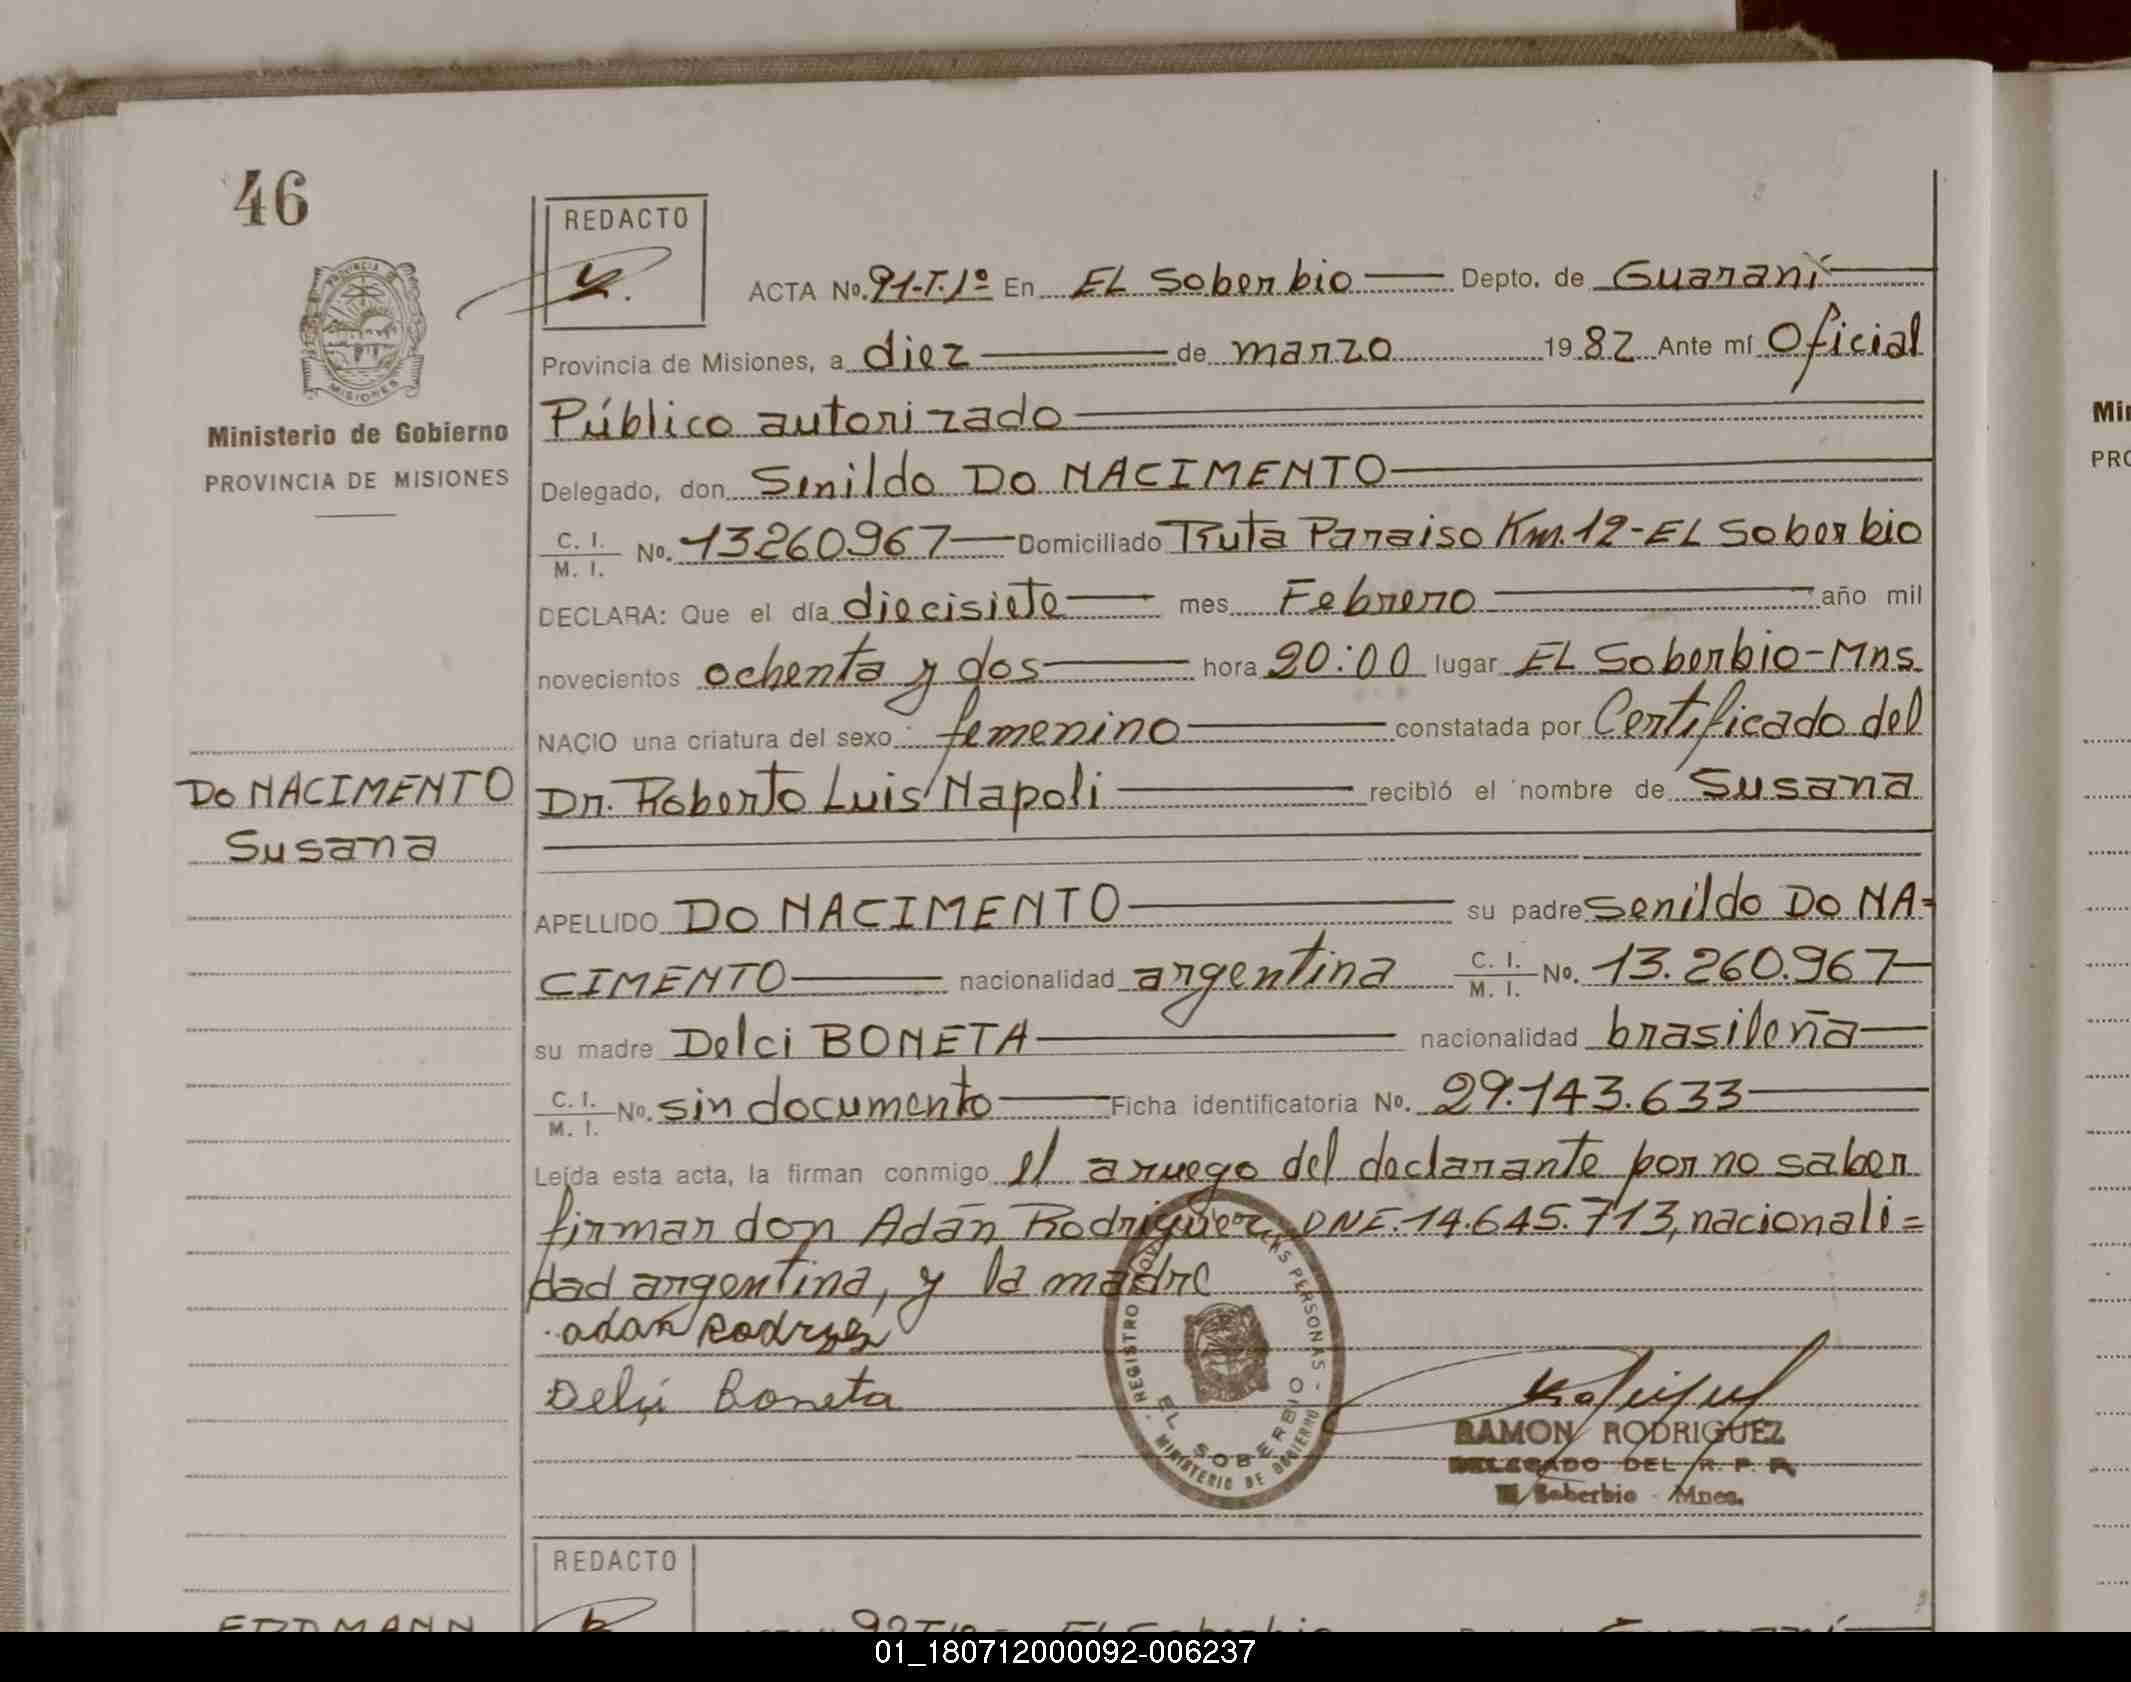 46
REDACTO
ACTA No. 91-T.1º En EL Soberbio Depto. de Guaraní
Provincia de Misiones, a diez de marzo 1982 Ante mí Oficial
Ministerio de Gobierno
PROVINCIA DE MISIONES
Público autorizado
Delegado, don Senildo Do NACIMENTO
C. I.
M. I. No. 13260967 Domiciliado Ruta Paraiso Km. 12-EL Soberbio
DECLARA: Que el día diecisiete mes Febrero año mil
novecientos ochenta y dos hora 20:00 lugar EL Soberbio-Mns.
NACIO una criatura del sexo femenino constatada por Certificado del
Do NACIMENTO
Susana
Dr. Roberto Luis Napoli recibió el nombre de Susana
APELLIDO DO NACIMENTO su padre Senildo Do NA=
CIMENTO nacionalidad argentina C. I.
M. I. No. 13.260.967
su madre Delci BONETA nacionalidad brasileña
C. I.
M. I. No. sin documento Ficha identificatoria No. 29.143.633
Leída esta acta, la firman conmigo el a ruego del declarante por no saber
firmar don Adán Rodriguez, DNE. 14.645.713, nacionali=
dad argentina, y la madre
adan
Delci Boneta
REGISTRO PERSONAS
EL SOBERBIO
MINISTERIO DE GOBIERNO
RAMON RODRIGUEZ
DELEGADO DEL R. P. P.
El Soberbio - Mnes.
REDACTO
Mi
PRO
01_180712000092-006237